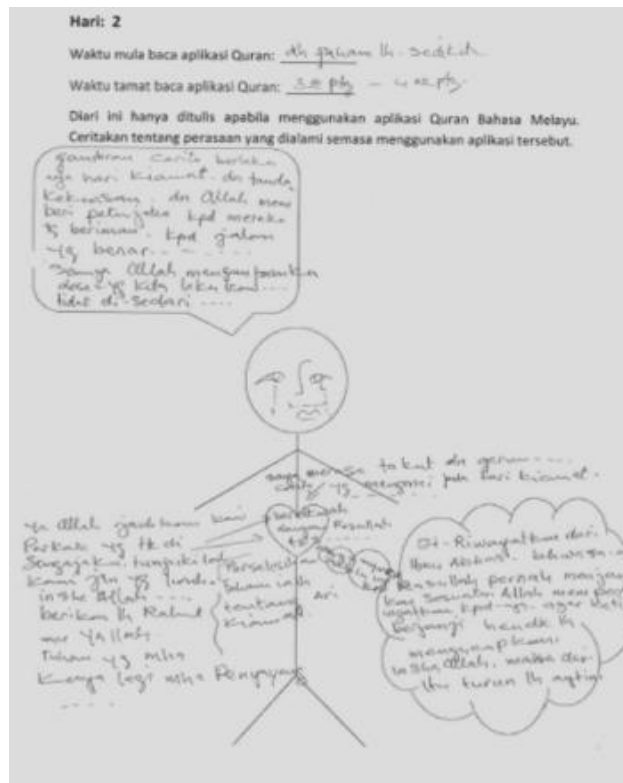 Hari: 2
Waktu mula baca aplikasi Quran: dh faham lh. sedikit
Waktu tamat baca aplikasi Quran:
Diari ini hanya ditulis apabila menggunakan aplikasi Quran Bahasa Melayu.
Ceritakan tentang perasaan yang dialami semasa menggunakan aplikasi tersebut.
gambaran cerita berlaku
nya hari Kiamat. dn tanda
Kekuasaan. dn Allah mem
beri petunjuk kpd mereka
yg beriman. kpd jalan
yg benar. - - -
Allah mengampunkan
dosa yg kita lakukan ....
tidak di sedari ....
saya merasa takut dn gerun ....
yg mengenai pada hari kiamat.
ya Allah jauhkan kami
Perkara yg tk di
Sengajakan tunjuki lah
kami jln yg
inshe Allah ....
berikan lh Rahmat
mu Ya Allah
Tuhan yg mha
Kanya lagi mha Penyayang
....
dengan Rasullah
Perselisihan
tentang
Kiamat.
Ari
Di-Riwayatkan dari
Ibnu Abbas. bahwasa
Rasullah pernah menjan
kan sesuatu Allah mem
ingatkan kpd-nya. agar
berjanji hendk lh
mengucapkan
inshaAllah, maka dari
itu turun lh